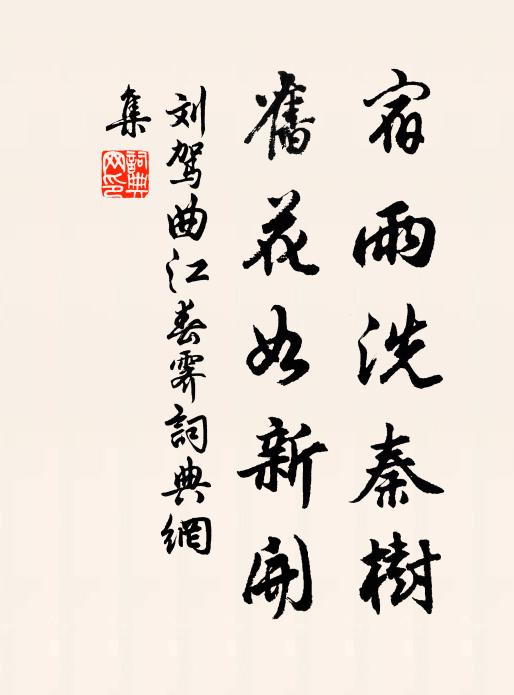 宿雨洗秦樹
舊花如新開
刘驾曲江春霽詞典網
集
詞典网印